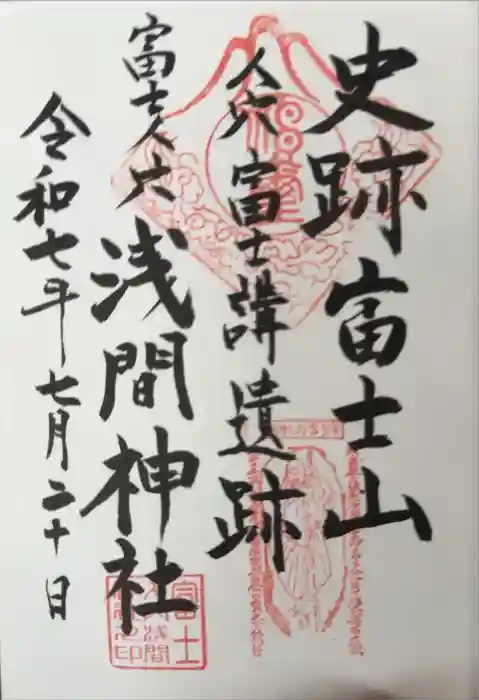 史跡富士山
人穴富士講遺跡
富士人穴
浅間神社
令和七年七月二十日